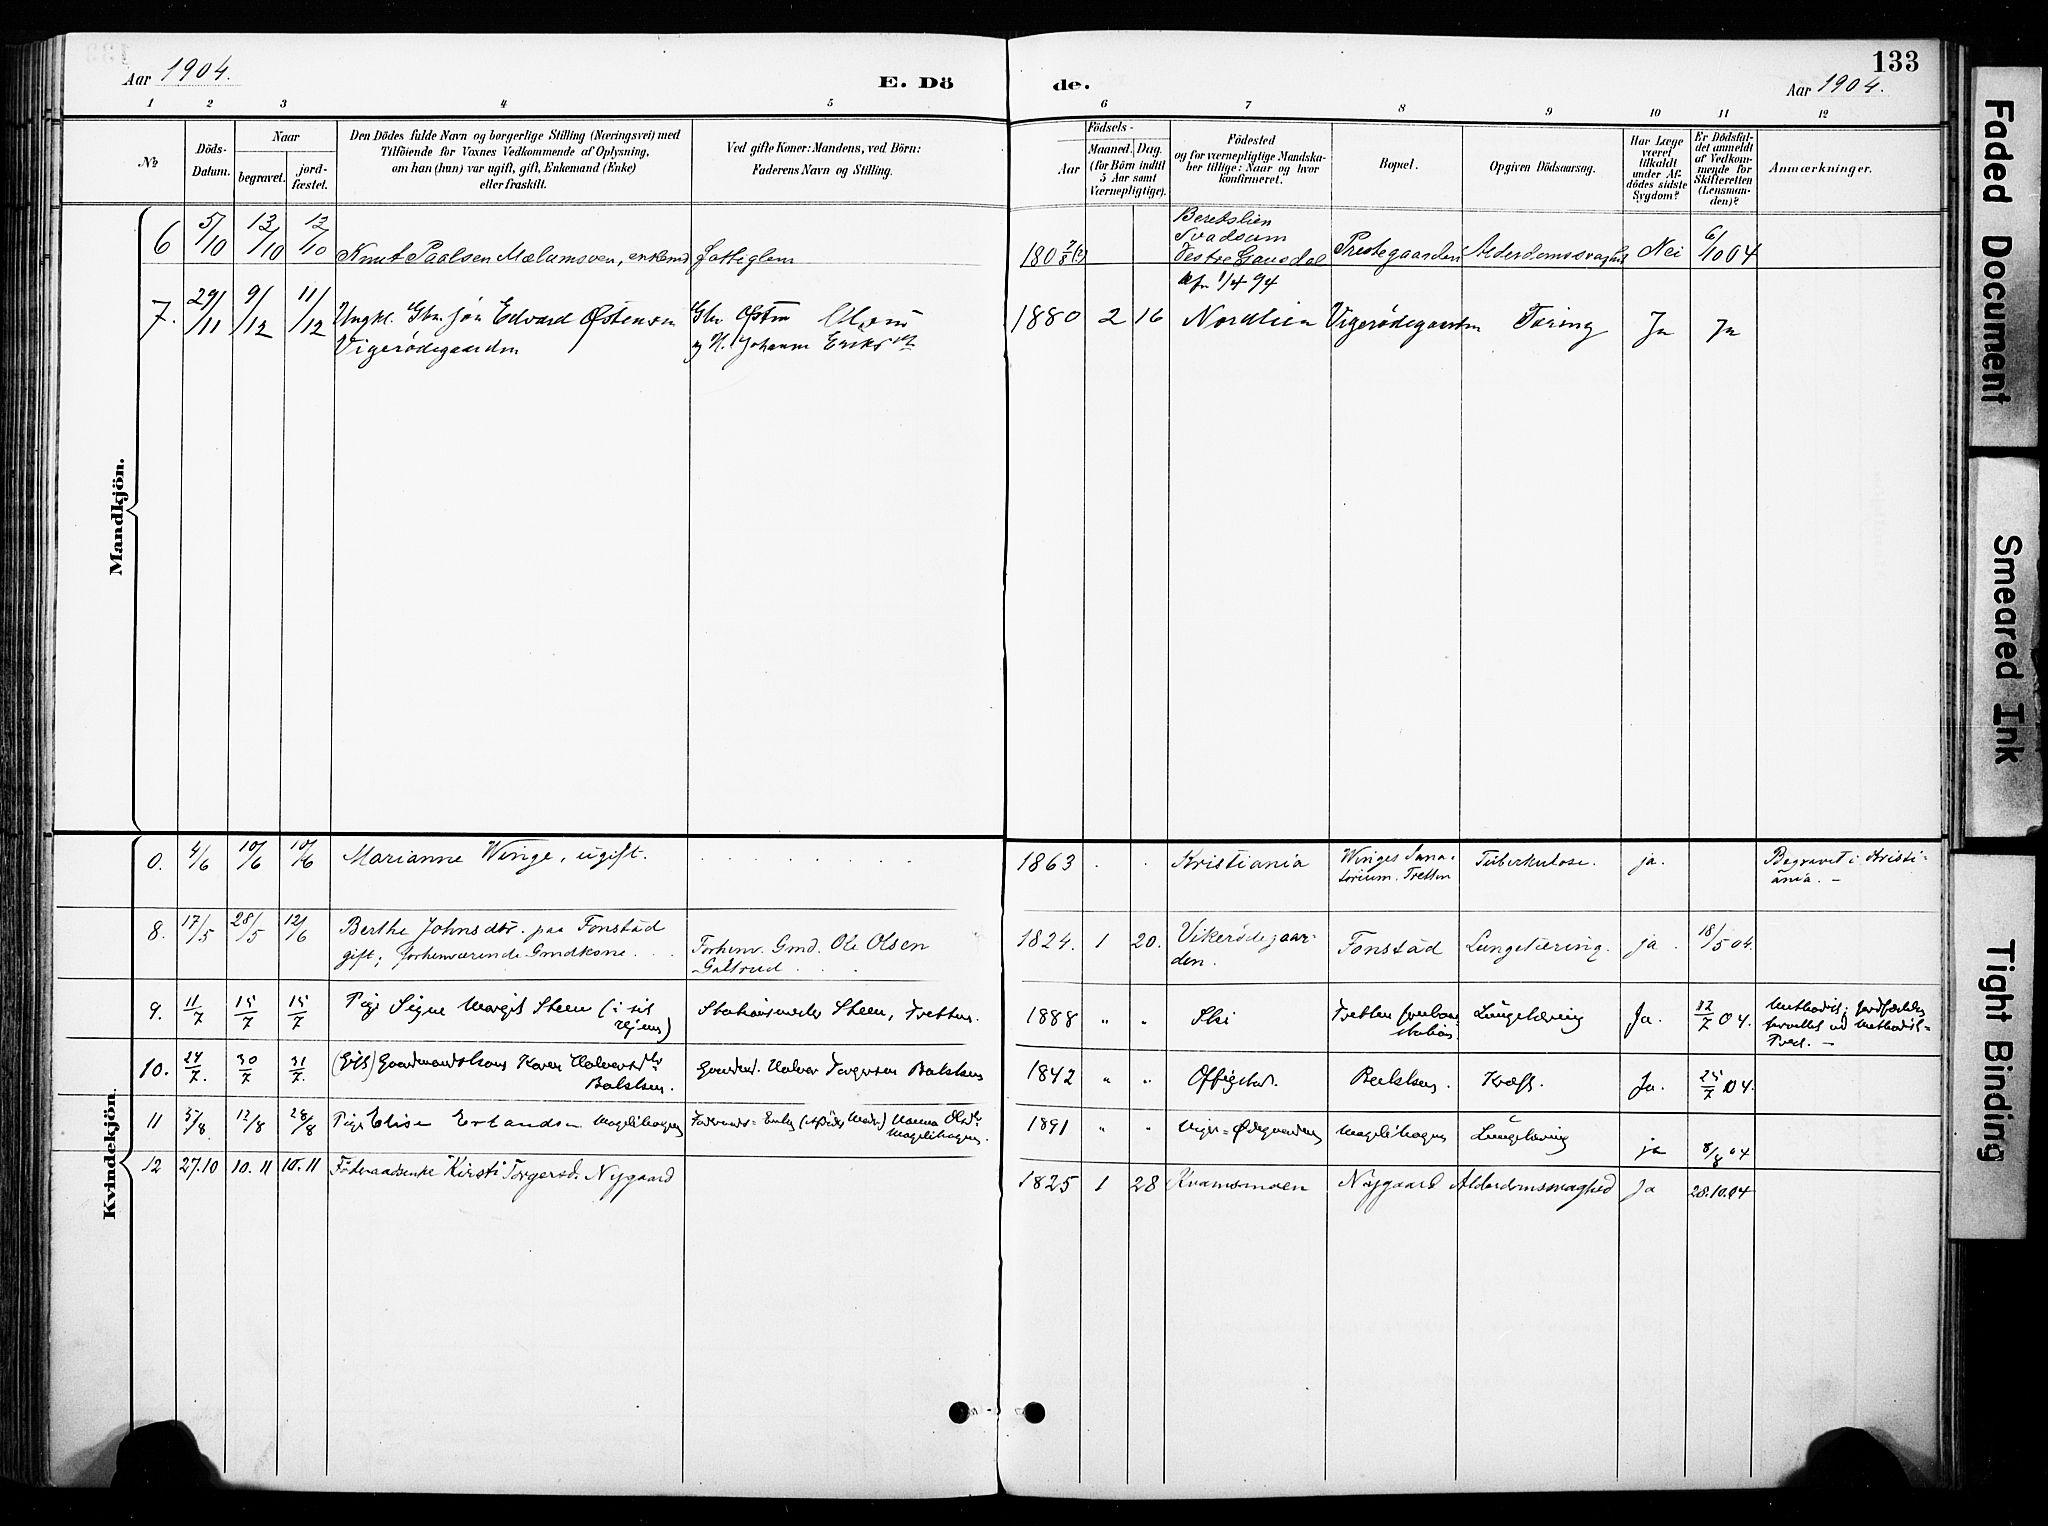 133
Aar 1904.
E. Dö
de.
Aar 1904.
1 2 3 4 5 6 7 8 9 10 11 12
№
Döds-
Datum.
Naar
begravet.
jord-
fæstet.
Den Dödes fulde Navn og borgerlige Stilling (Næringsvei) med
Tilföiende for Voxnes Vedkommende af Oplysning,
om han (hun) var ugift, gift, Enkemand (Enke)
eller fraskilt.
Ved gifte Koner: Mandens, ved Börn:
Faderens Navn og Stilling.
Födsels-
Aar
Maaned. Dag.
(for Börn indtil
5 Aar samt
Værnepligtige).
Födested
og for værnepligtige Mandska-
ber tillige: Naar og hvor
konfirmeret.
Bopæl.
Opgiven Dödsaarsag.
Har Læge
været
tilkaldt
under Af-
dödes sidste
Sygdom?
Er Dödsfal-
det anmeldt
af Vedkom-
mende for
Skifteretten
(Lensman-
den)?
Anmærkninger.
Mandkjön.
6 5/10 12/10 12/10 Knut Paalsen Mælumsveen, enkemd fattiglem 1808 Svadsum
Vestre Gausdal Prestegaarden Alderdomssvaghed Nei 6/10 04
7. 29/11 9/12 11/12 Ungkl. Gbr. Jon Edvard Østensen
Vigerødegaarden
Gbr Østen Olsen
og H. Johanne Eriksdtr
1880 2 16 Nordlien Vigerødegaarden Tæring Ja Ja
1/4 94
Kvindekjön.
0. 4/6 10/6 10/6 Marianne Winge, ugift. 1863 Kristiania Winges Sana-
torium. Tretten Tuberkulose. ja. Begravet i Kristi-
ania. -
8. 17/5 28/5 12/6 Berthe Johnsdtr. paa Fonstad
gift, forhenværende Gmdkone.
Forhenv. Gmd. Ole Olsen
Galtrud
1824. 1 20. Vikerødegaar-
den. Fonstad Lungetæring. ja. 18/5 04.
9. 11/7 15/7 15/7 Pige Signe Margit Steen (i sit
Stationsmester Steen, Tretten.
1888 " " Ski Tretten Jernbane
station. Lungetæring Ja. 12/7 04. Methodist; Jordfæstelse
forrettet ved Methodist-
Præst. -
10. 24/7. 30/7 31/7. (Gift) Gaardmandskone Karen Halvorsdtr
Bakken.
Gaardmd. Halvor Torgersen Bakken
1842 " " Offigstad. Bakken. Kræft. Ja. 25/7 04.
11 5/8. 12/8 28/8 Pige Elise Erlandsen Magelihaugen
Hanna Olsdtr
Magelihaugen.
1891 " " Viger-Ødegaarden Magelihaugen Lungetæring ja 8/8 04
12 27.10 10.11 10.11 Föderaadsenke Kirsti Torgersd. Nygaard 1825 1 28 Kvamsmoen Nygaard Alderdomssvaghed Ja 28.10.04
Faded Document
Smeared Ink
Tight Binding